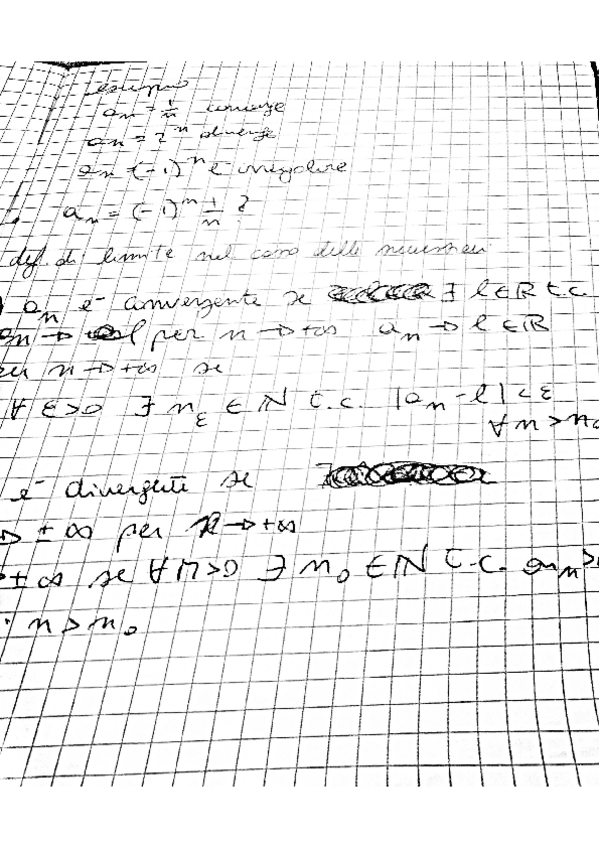 esempio
an = 1/n converge
an = 2^n diverge
an = (-1)^n è irregolare
an = (-1)^n 1/n ?
def. di limite nel caso delle successioni
) an è convergente se ∃ l ∈ ℝ t.c.
an → l per n → +∞ an → l ∈ ℝ
per n → +∞ se
∀ ε > 0 ∃ nε ∈ ℕ t.c. |an - l| < ε
∀ n > n
è divergente se
→ ±∞ per n → +∞
→ ±∞ se ∀ M > 0 ∃ n0 ∈ ℕ t.c. an >
n > n0